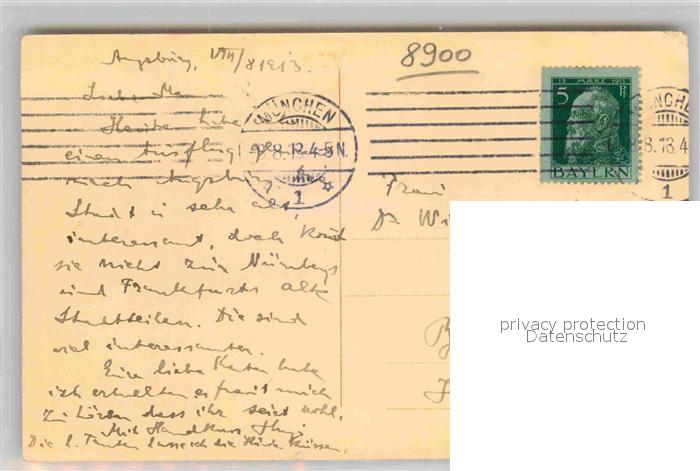 Augsburg, VIII/8 1913.
8900
Liebe Ma
Heute habe
einen Ausflug
nach Augsburg
Stadt is sehr alt,
interessant, doch
sie nicht zu Nürnbergs
und Frankfurts alte
Stadtteilen. Die sind
viel interessanter.
Eure liebe Karten habe
ich erhalten es freut mich
zu hören dass ihr seid wohl.
Mit Handkuss
Die l. Tanten lasse ich die Hände küssen.
MÜNCHEN
8.13.4-5N.
1
13 MÄRZ 1911
5 Pf.
BAYERN
8.13.4
1
Frau
Dr. Wi
privacy protection
Datenschutz